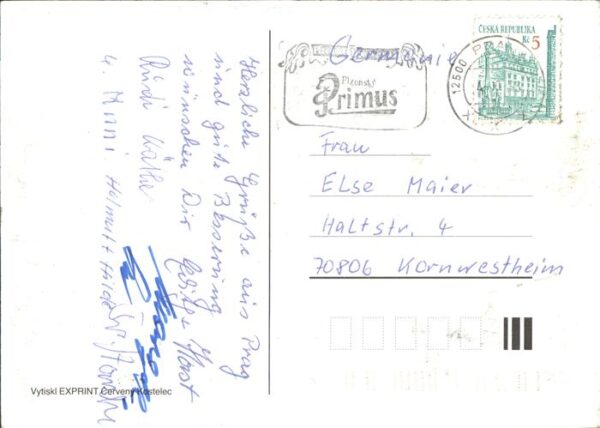 Herzliche Grüße aus Prag
und gute Besserung
wünschen Dir Horst
Rudi Käthe
Helmut Hilde
Germanie
ČESKÁ REPUBLIKA
Kč 5
12500 PRAHA
Plzenský
Primus
Frau
Else Maier
Haltstr. 4
70806 Kornwestheim
Vytiskl EXPRINT Červený Kostelec